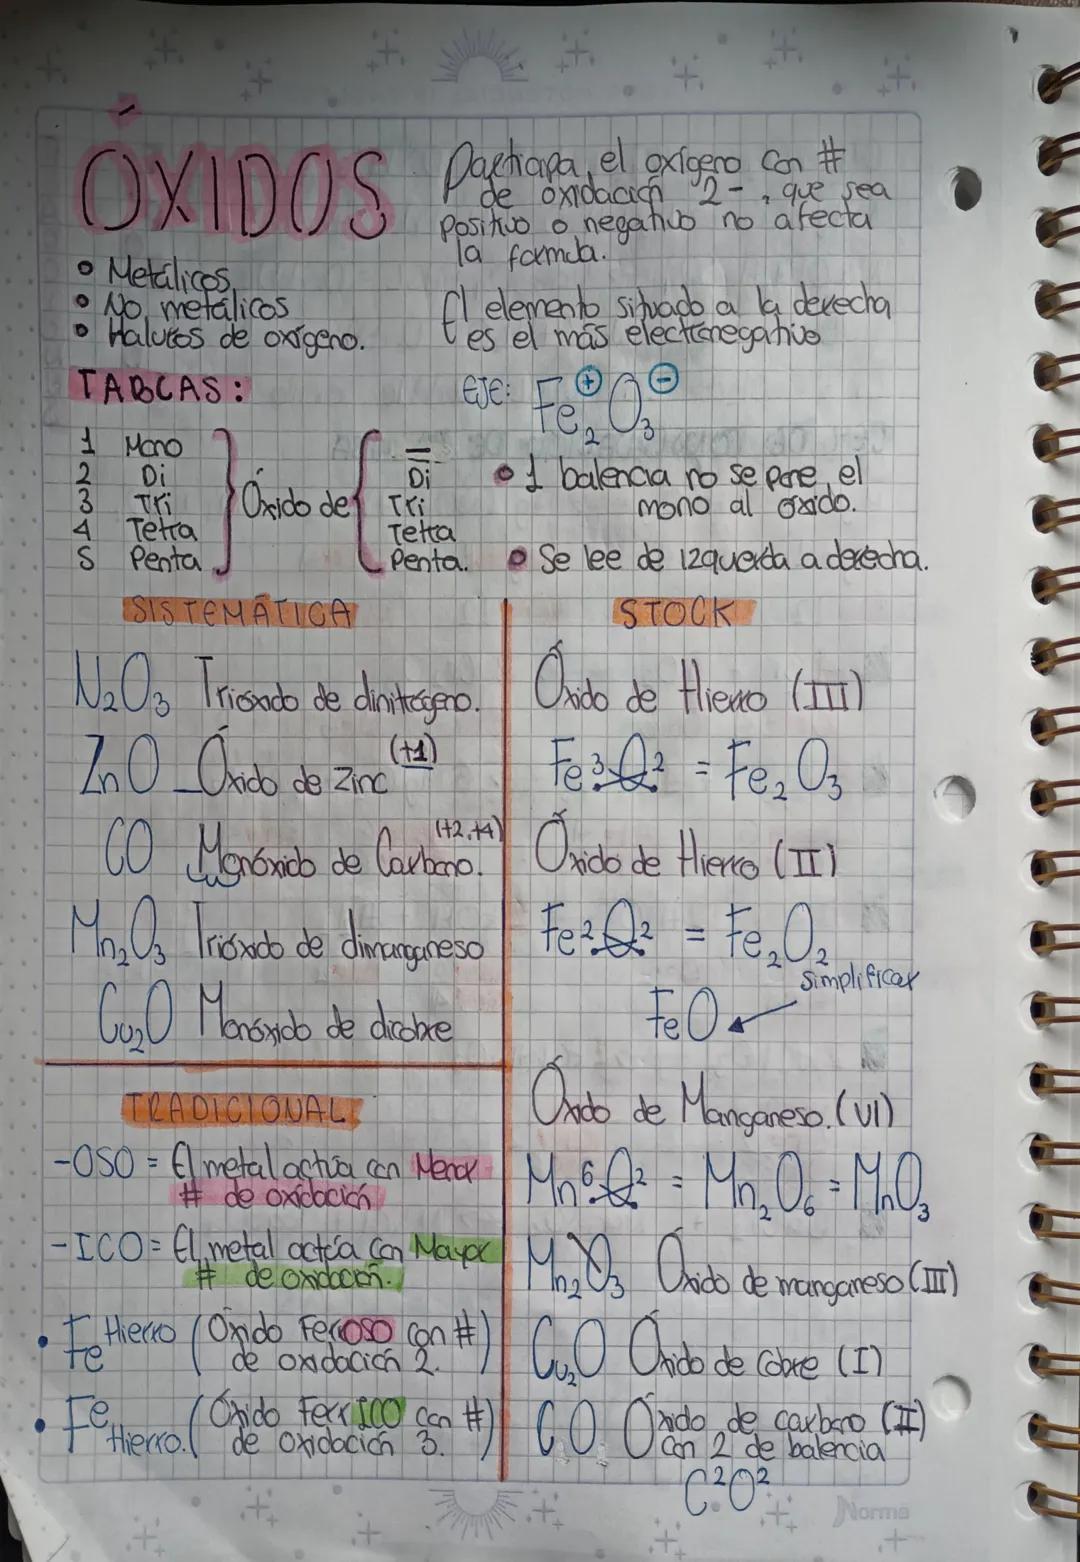 ÓXIDOS
Participa el oxígeno con #
de oxidación 2-, que sea
positivo o negativo no afecta
la formula.
• Metálicos
• No metálicos
• Haluros de oxígeno.
El elemento situado a la derecha
es el más electronegativo
TABLAS:
EJE: Fe₂⊕O₃⊖
1 Mono
2 Di
3 Tri
4 Tetra
5 Penta
Óxido de
—
Di
Tri
Tetra
Penta.
• 1 balencia no se pone el
mono al oxido.
• Se lee de izquierda a derecha.
SISTEMÁTICA
N₂O₃ Trioxido de dinitrógeno.
ZnO Óxido de Zinc (+1)
CO Monóxido de Carbono. (+2,+4)
Mn₂O₃ Trióxido de dimanganeso
Cu₂O Monóxido de dicobre
STOCK
Óxido de Hierro (III)
Fe³O² = Fe₂O₃
Óxido de Hierro (II)
Fe²O² = Fe₂O₂
simplificar
FeO
Óxido de Manganeso. (VI)
Mn⁶O² = Mn₂O₆ = MnO₃
Mn₂O₃ Óxido de manganeso (III)
Cu₂O Óxido de Cobre (I)
CO Óxido de carbono (II)
con 2 de balencia
C²O²
TRADICIONAL
-OSO = El metal actúa con Menor
# de oxidación
-ICO = El metal actúa con Mayor
# de oxidación.
• Fe Hierro (Óxido Ferroso con #
de oxidación 2.)
• Fe Hierro. (Óxido FerrICO con #
de oxidación 3.)
Norma